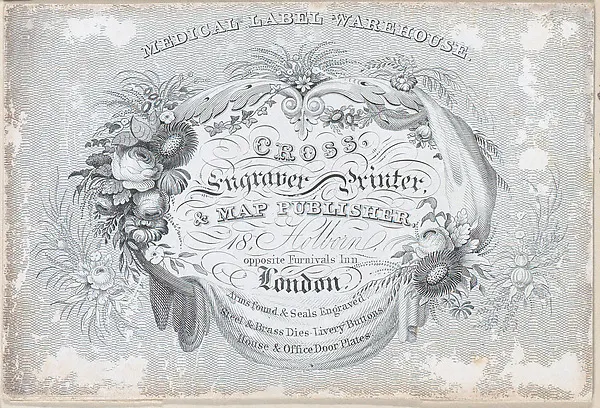 MEDICAL LABEL WAREHOUSE.
CROSS,
Engraver Printer,
& MAP PUBLISHER,
18, Holborn
opposite Furnivals Inn
London
Arms found & Seals Engraved
Steel & Brass Dies - Livery Buttons
House & Office Door Plates